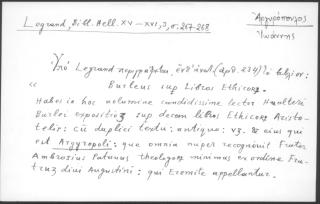 Legrand, Bibl. Hell. XV–XVI, 3, σ. 267-268
Ἀργυρόπουλος
Ἰωάννης
Ὑπὸ Legrand περιγράφεται, ἐνθ' ἀνωτ. (ἀρθ. 234)
« Burleus sup Libros Ethicorꝫ.
Habes in hoc volumine candidissime lector Gualterii
Burlei expositioēꝫ sup decem libros Ethicorꝫ Aristo-
telis: cū duplici textu: antiquo: vꝫ. & eius qui
est Argyropoli: que omnia nuper recognouit Frater
Ambrosius Putanus theologorꝫ minimus ex ordine Fra-
truꝫ diui Augustini: qui Eremite appellantur.